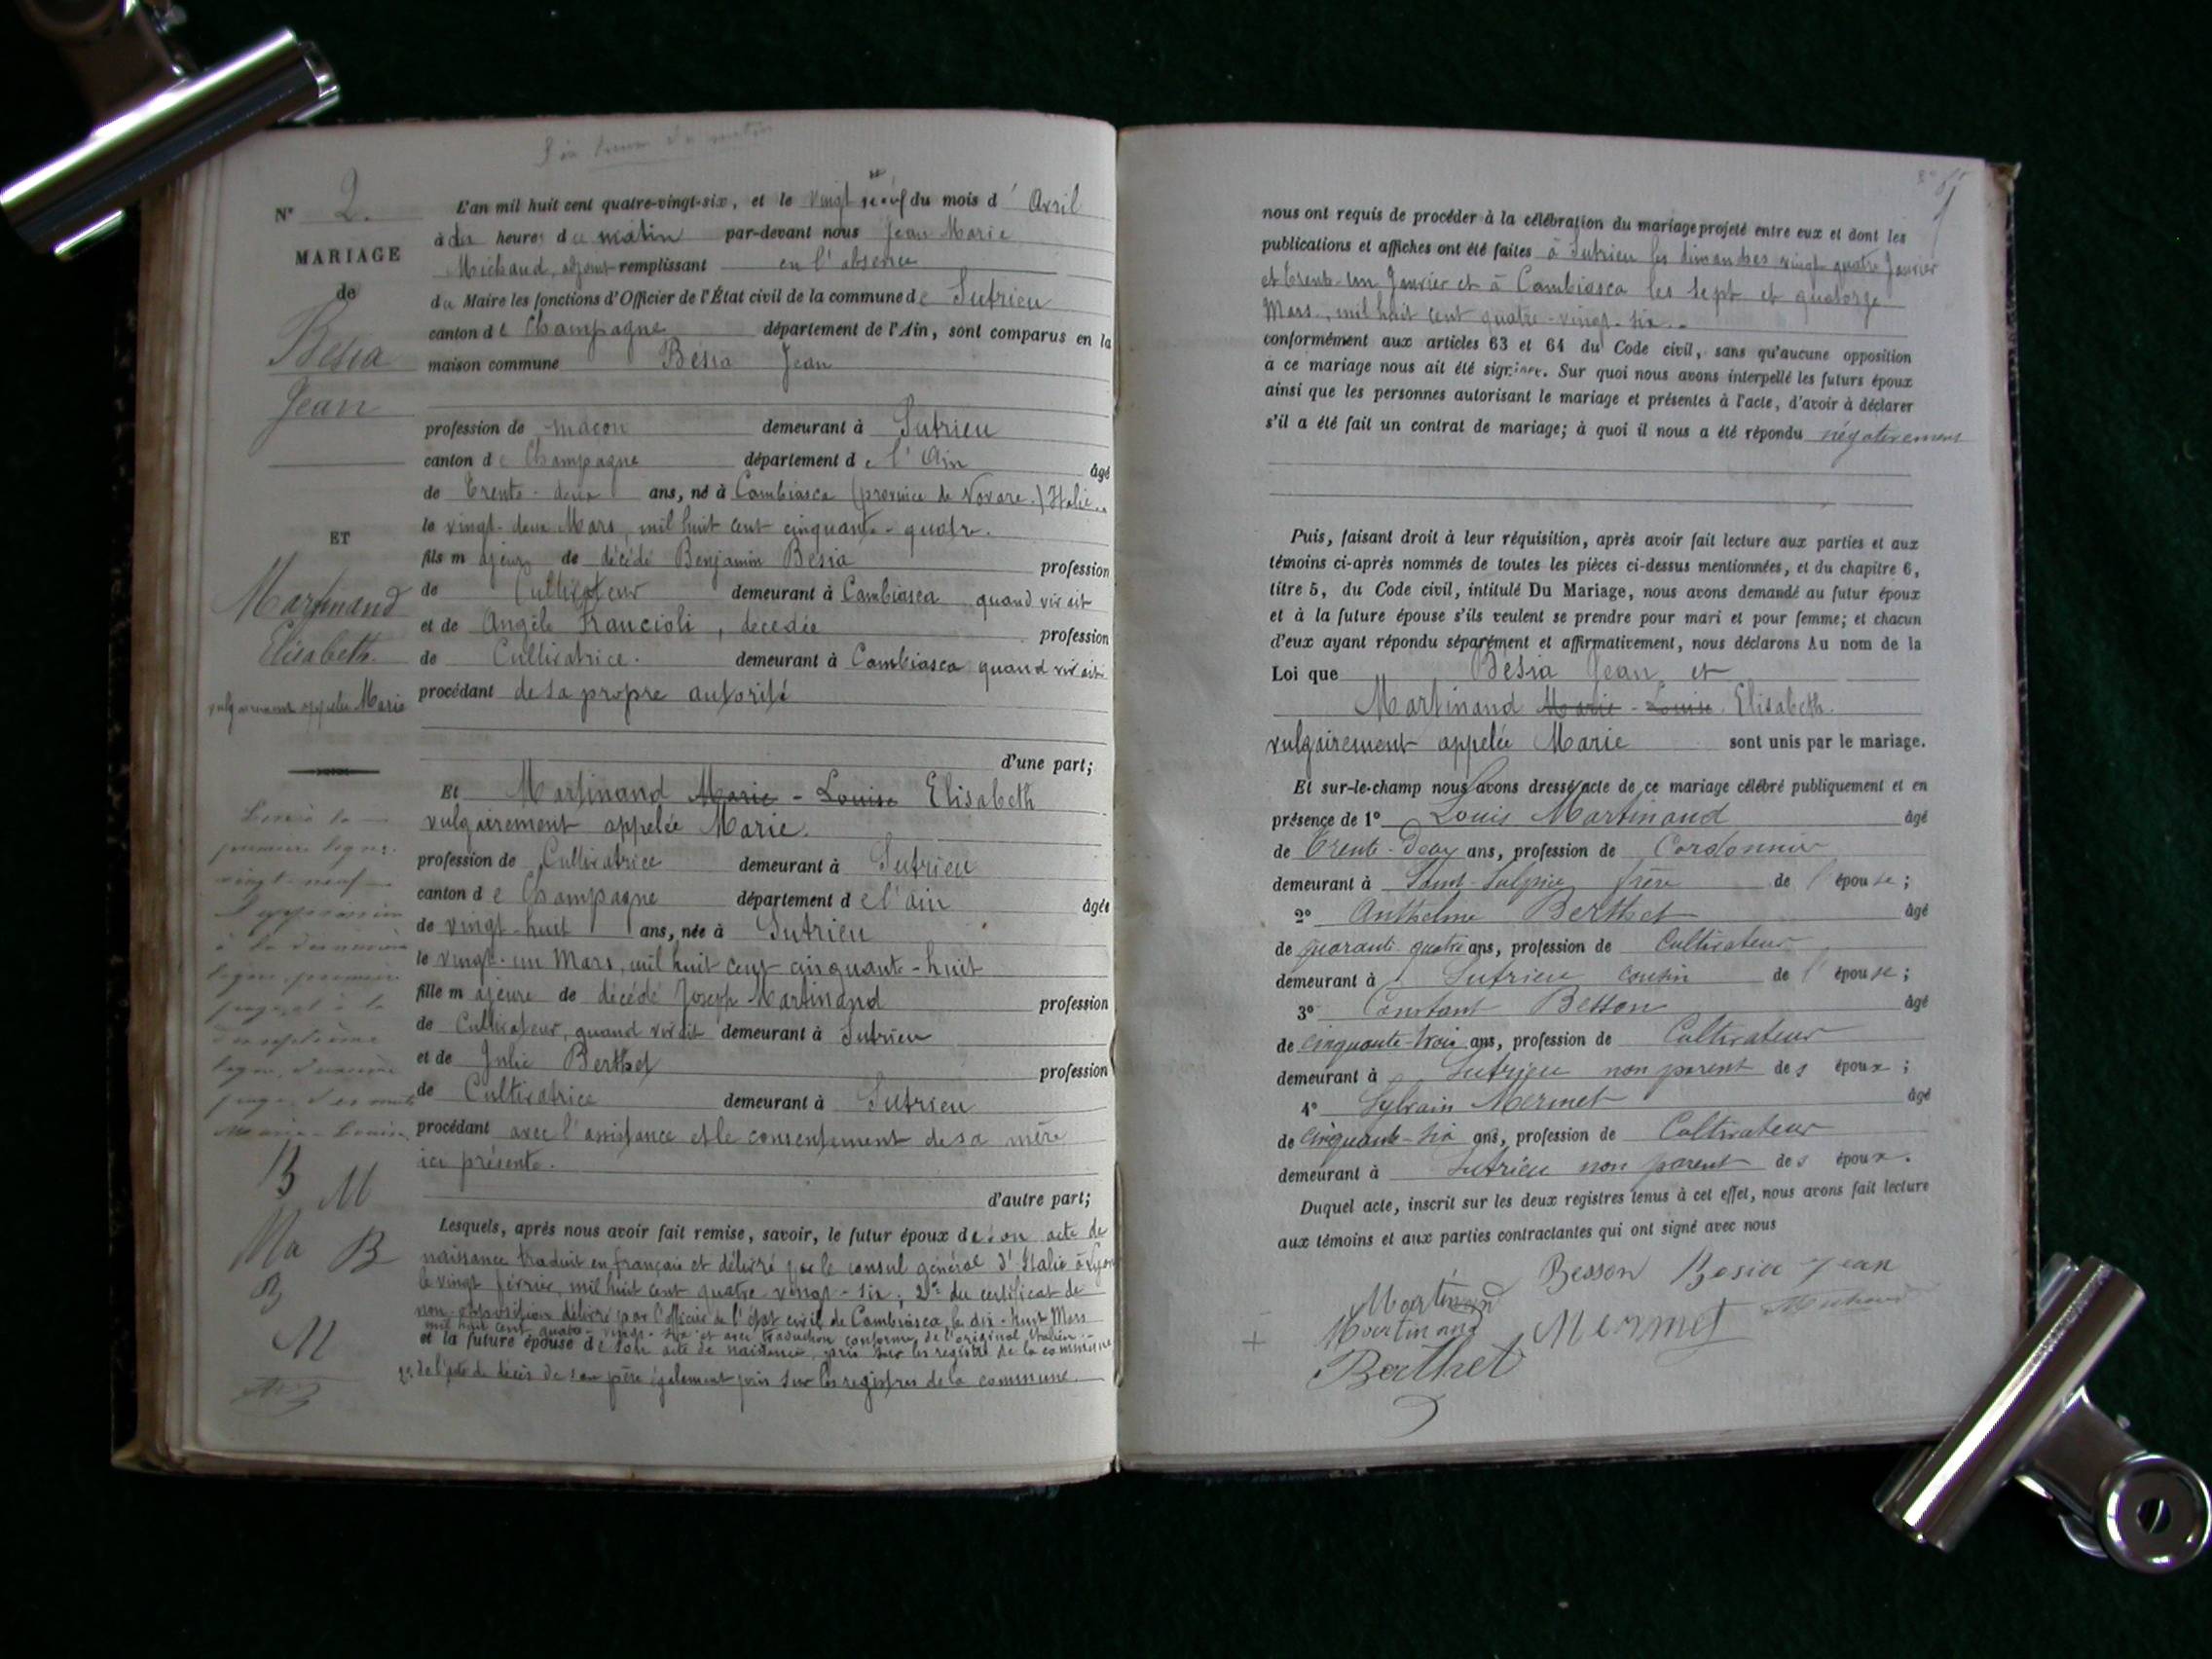 N° 2.
MARIAGE
de
Bésia
Jean
ET
Martinand
Elisabeth
vulgairement appelée Marie
L'an mil huit cent quatre-vingt-six, et le vingt neuf du mois d' Avril
à dix heures du matin par-devant nous Jean Marie
Michaud, adjoint remplissant en l'absence
du Maire les fonctions d'Officier de l'État civil de la commune de Sutrieu
canton de Champagne département de l'Ain, sont comparus en la
maison commune Bésia Jean
profession de maçon demeurant à Sutrieu
canton de Champagne département de l'Ain âgé
de trente-deux ans, né à Cambiasca (province de Novare.) Italie..
le vingt-deux Mars, mil huit cent cinquante-quatre.
fils majeur de décédé Benjamin Bésia profession
de Cultivateur demeurant à Cambiasca quand vivait
et de Angèle Francioli, décédée profession
de Cultivatrice. demeurant à Cambiasca quand vivait
procédant de sa propre autorité
d'une part;
Et Martinand Marie-Louise Elisabeth
vulgairement appelée Marie.
profession de Cultivatrice demeurant à Sutrieu
canton de Champagne département de l'ain âgée
de vingt-huit ans, née à Sutrieu
le vingt-un Mars, mil huit cent cinquante-huit
fille majeure de décédé Joseph Martinand profession
de Cultivateur, quand vivait demeurant à Sutrieu
et de Julie Berthet profession
de Cultivatrice demeurant à Sutrieu
procédant avec l'assistance et le consentement de sa mère
ici présente.
d'autre part;
Lesquels, après nous avoir fait remise, savoir, le futur époux de son acte de
naissance traduit en français et délivré par le consul général d'Italie à Lyon
le vingt février, mil huit cent quatre-vingt-six; 2° du certificat de
non-opposition délivré par l'officier de l'état civil de Cambiasca le dix-huit Mars
mil huit cent quatre-vingt-six et avec traduction conforme de l'original italien.-
et la future épouse de son acte de naissance, pris sur les registres de la commune
2° de l'acte de décès de son père également pris sur les registres de la commune.
première ligne
vingt-neuf
à la
page, des mots
Marie-Louise
B M
Ma B
B
M
nous ont requis de procéder à la célébration du mariage projeté entre eux et dont les
publications et affiches ont été faites à Sutrieu les dimanches vingt-quatre Janvier
et trente-un Janvier et à Cambiasca les sept et quatorze
Mars, mil huit cent quatre-vingt-six..
conformément aux articles 63 et 64 du Code civil, sans qu'aucune opposition
à ce mariage nous ait été signifiée. Sur quoi nous avons interpellé les futurs époux
ainsi que les personnes autorisant le mariage et présentes à l'acte, d'avoir à déclarer
s'il a été fait un contrat de mariage; à quoi il nous a été répondu négativement
Puis, faisant droit à leur réquisition, après avoir fait lecture aux parties et aux
témoins ci-après nommés de toutes les pièces ci-dessus mentionnées, et du chapitre 6,
titre 5, du Code civil, intitulé Du Mariage, nous avons demandé au futur époux
et à la future épouse s'ils veulent se prendre pour mari et pour femme; et chacun
d'eux ayant répondu séparément et affirmativement, nous déclarons Au nom de la
Loi que Bésia Jean et
Martinand Marie-Louise Elisabeth
vulgairement appelée Marie sont unis par le mariage.
Et sur-le-champ nous avons dressé acte de ce mariage célébré publiquement et en
présence de 1° Louis Martinand âgé
de trente-deux ans, profession de Cordonnier
demeurant à Saint-Sulpice frère de l'épouse;
2° Anthelme Berthet âgé
de quarante quatre ans, profession de Cultivateur
demeurant à Sutrieu cousin de l'épouse;
3° Constant Besson âgé
de cinquante-trois ans, profession de Cultivateur
demeurant à Sutrieu non parent des époux;
4° Sylvain Mermet âgé
de cinquante-six ans, profession de Cultivateur
demeurant à Sutrieu non parent des époux.
Duquel acte, inscrit sur les deux registres tenus à cet effet, nous avons fait lecture
aux témoins et aux parties contractantes qui ont signé avec nous
Besson Besia Jean
Martinand Michaud
Martinand Mermet
Berthet